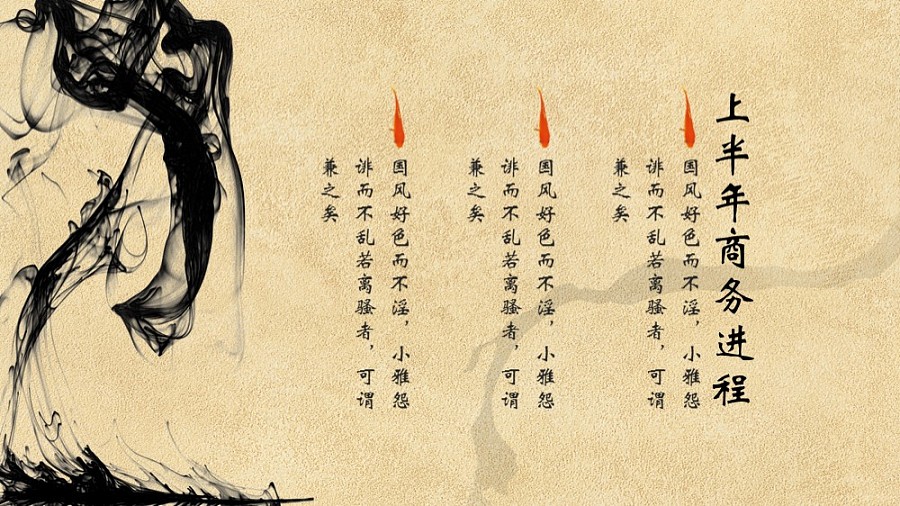 上半年商务进程
国风好色而不淫，小雅怨
诽而不乱若离骚者，可谓
兼之矣
国风好色而不淫，小雅怨
诽而不乱若离骚者，可谓
兼之矣
国风好色而不淫，小雅怨
诽而不乱若离骚者，可谓
兼之矣